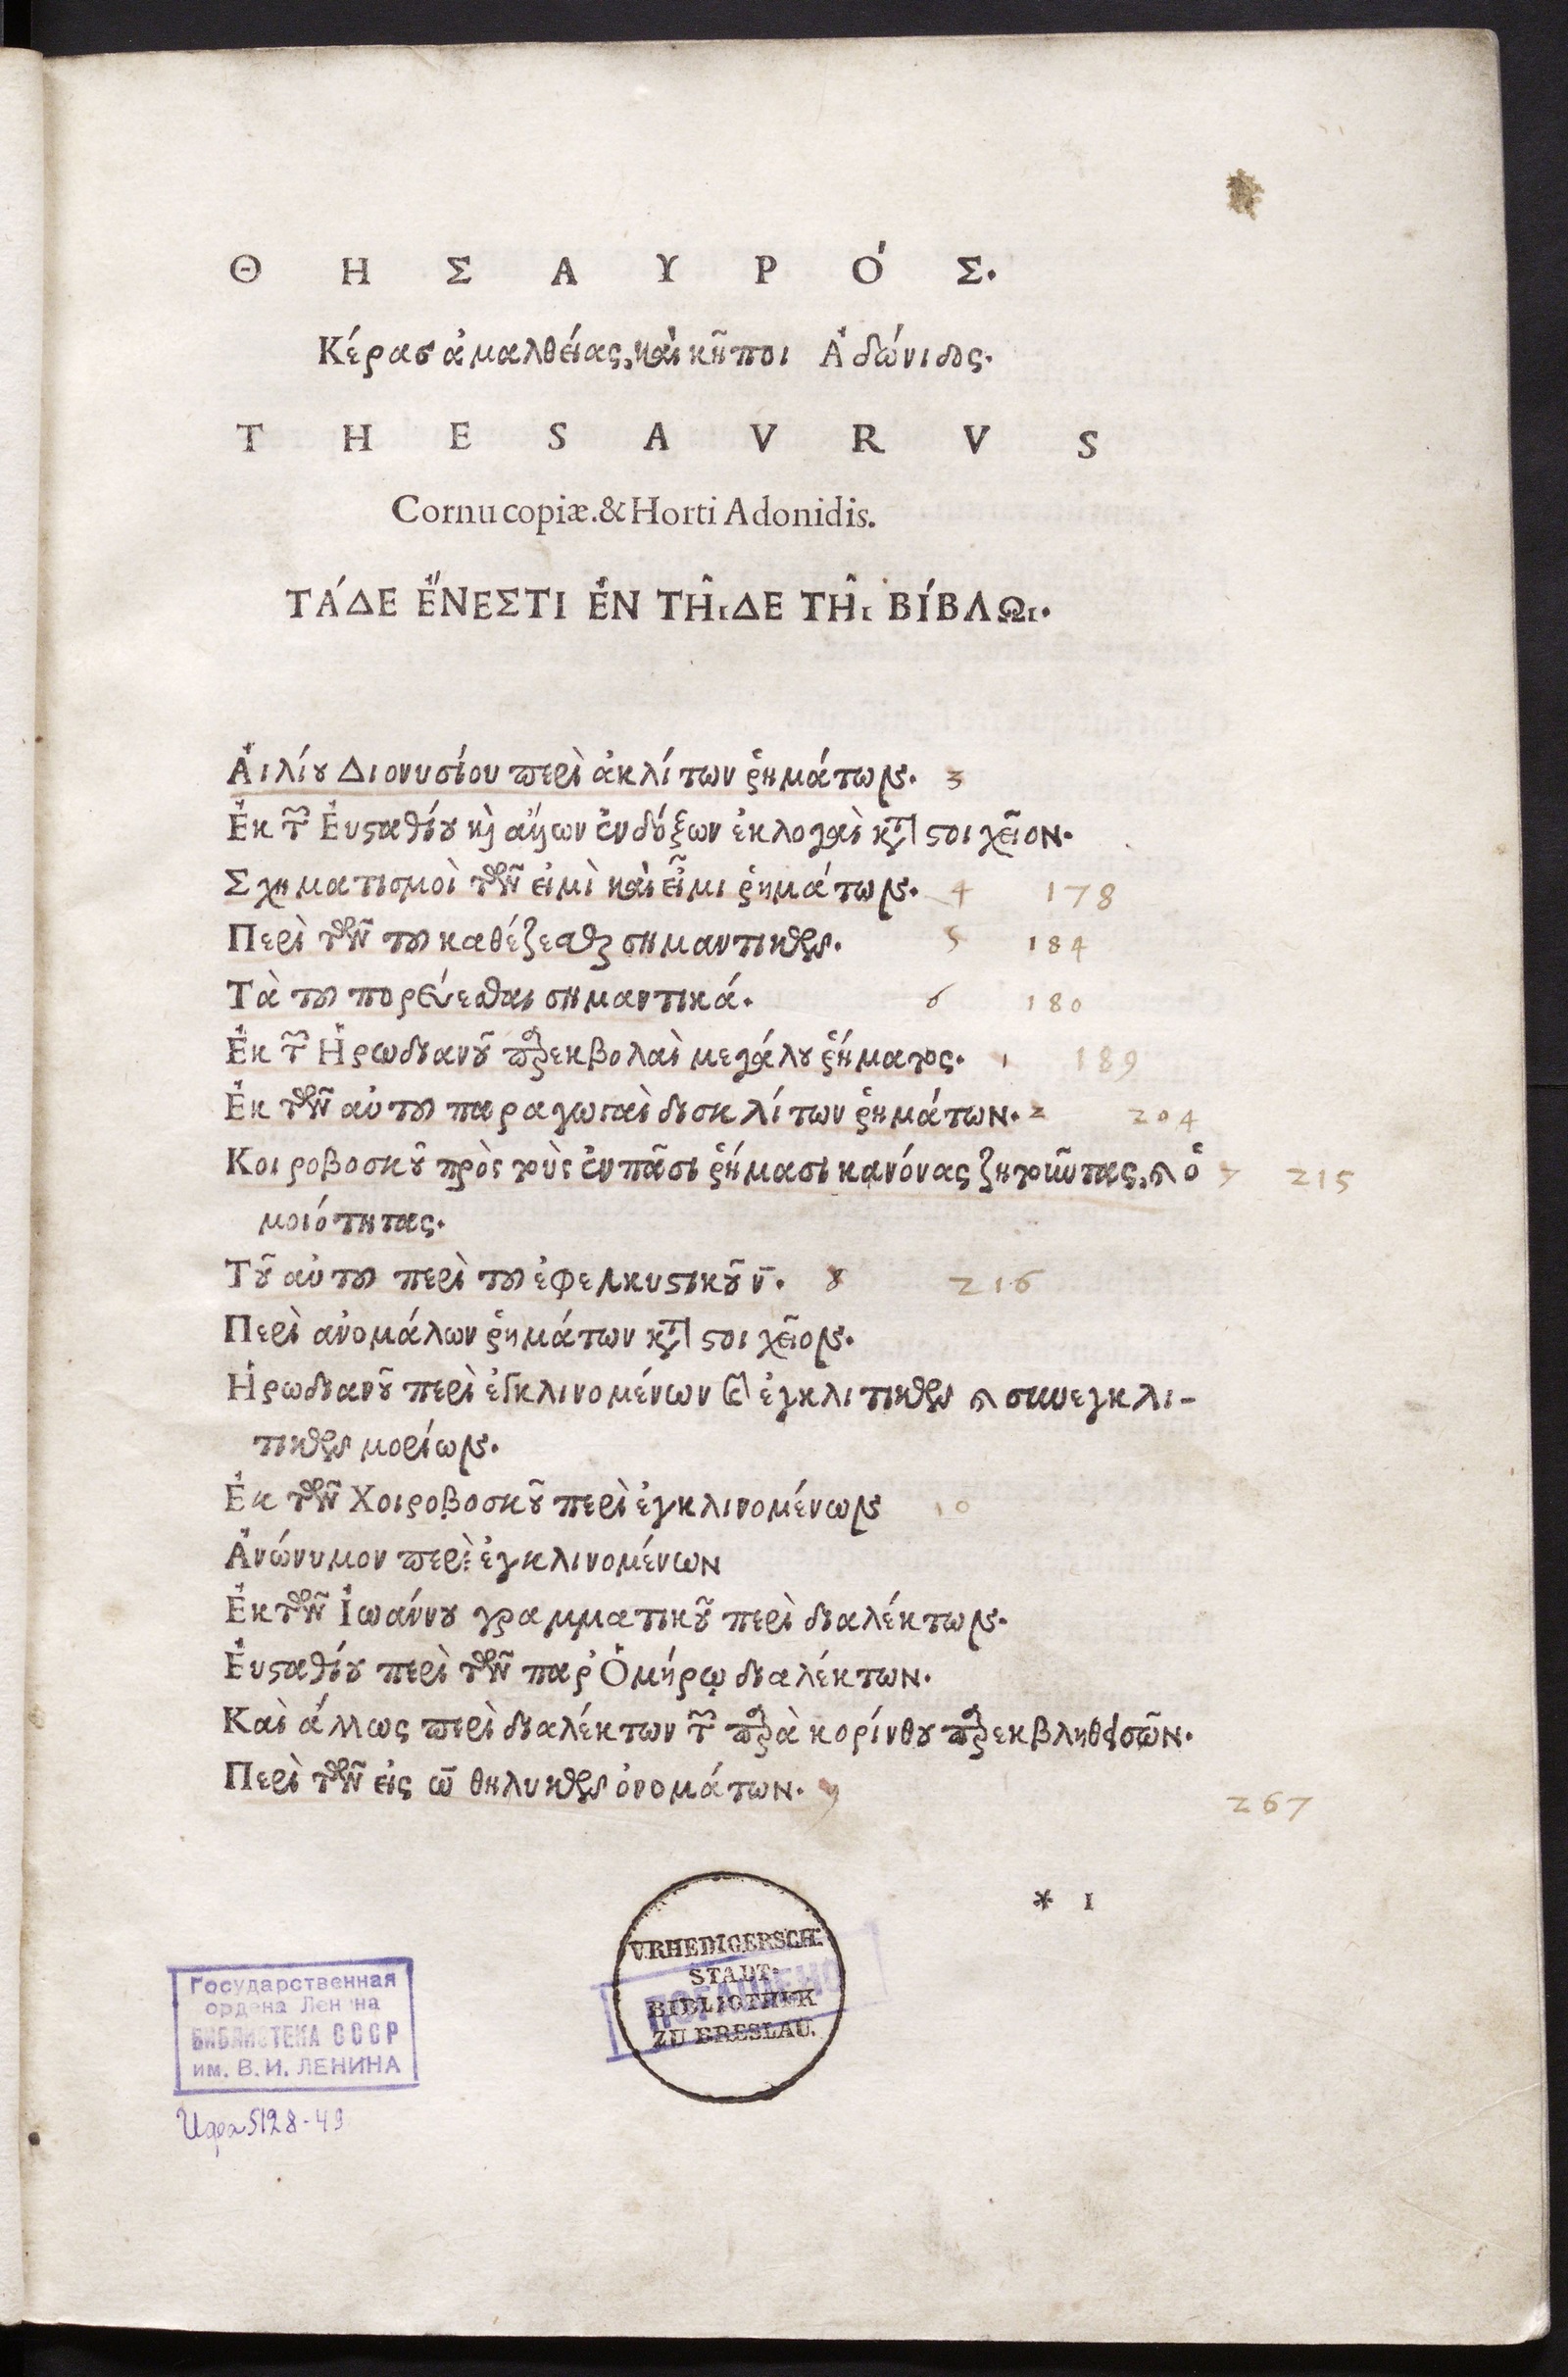 Θ Η Σ Α Υ Ρ Ό Σ.
Κέρασ ἀμαλθείας, καὶ κῆποι Ἀδώνιδος.
T H E S A V R V S
Cornucopiæ. & Horti Adonidis.
ΤΆΔΕ ἜΝΕΣΤΙ ἘΝ ΤΗ͂ιΔΕ ΤΗ͂ι ΒΊΒΛΩι.
Ἀιλίου Διονυσίου περὶ ἀκλίτων ῥημάτων. 3
Ἐκ τῶν Ἐυσταθίου καὶ ἄλλων ἐνδόξων ἐκλογαὶ κατὰ στοιχεῖον.
Σχηματισμοὶ τῶν εἰμὶ καὶ εἶμι ῥημάτων. 4 178
Περὶ τῶν τοῦ καθέζεσθαι σημαντικῶν. 5 184
Τὰ τοῦ πορεύεσθαι σημαντικά. 6 180
Ἐκ τῶν Ἡρωδιανοῦ παρεκβολαὶ μεγάλου ῥήματος. 1 189
Ἐκ τῶν αὐτοῦ παραγωγαὶ δυσκλίτων ῥημάτων. 2 204
Κοιροβοσκοῦ πρὸς τοὺς ἐν πᾶσι ῥήμασι κανόνας ζητοῦντας, καὶ ὁ 7 215
μοιότητας.
Τοῦ αὐτοῦ περὶ τοῦ ἐφελκυστικοῦ ν. 8 216
Περὶ ἀνομάλων ῥημάτων κατὰ στοιχεῖον.
Ἡρωδιανοῦ περὶ ἐγκλινομένων καὶ ἐγκλιτικῶν καὶ συνεγκλι-
τικῶν μορίων.
Ἐκ τῶν Χοιροβοσκοῦ περὶ ἐγκλινομένων 10
Ἀνώνυμον περὶ ἐγκλινομένων
Ἐκ τῶν Ἰωάννου γραμματικοῦ περὶ διαλέκτων.
Ἐυσταθίου περὶ τῶν παρ' Ὁμήρῳ διαλέκτων.
Καὶ ἄλλως περὶ διαλέκτων τῶν παρὰ κορίνθου παρεκβληθεισῶν.
Περὶ τῶν εἰς ω θηλυκῶν ὀνομάτων. 9 267
* 1
V. RHEDIGERSCH.
STADT-
BIBLIOTHEK
ZU BRESLAU.
ПОГАШЕНО
Государственная
ордена Ленина
БИБЛИОТЕКА СССР
им. В. И. ЛЕНИНА
5128-49